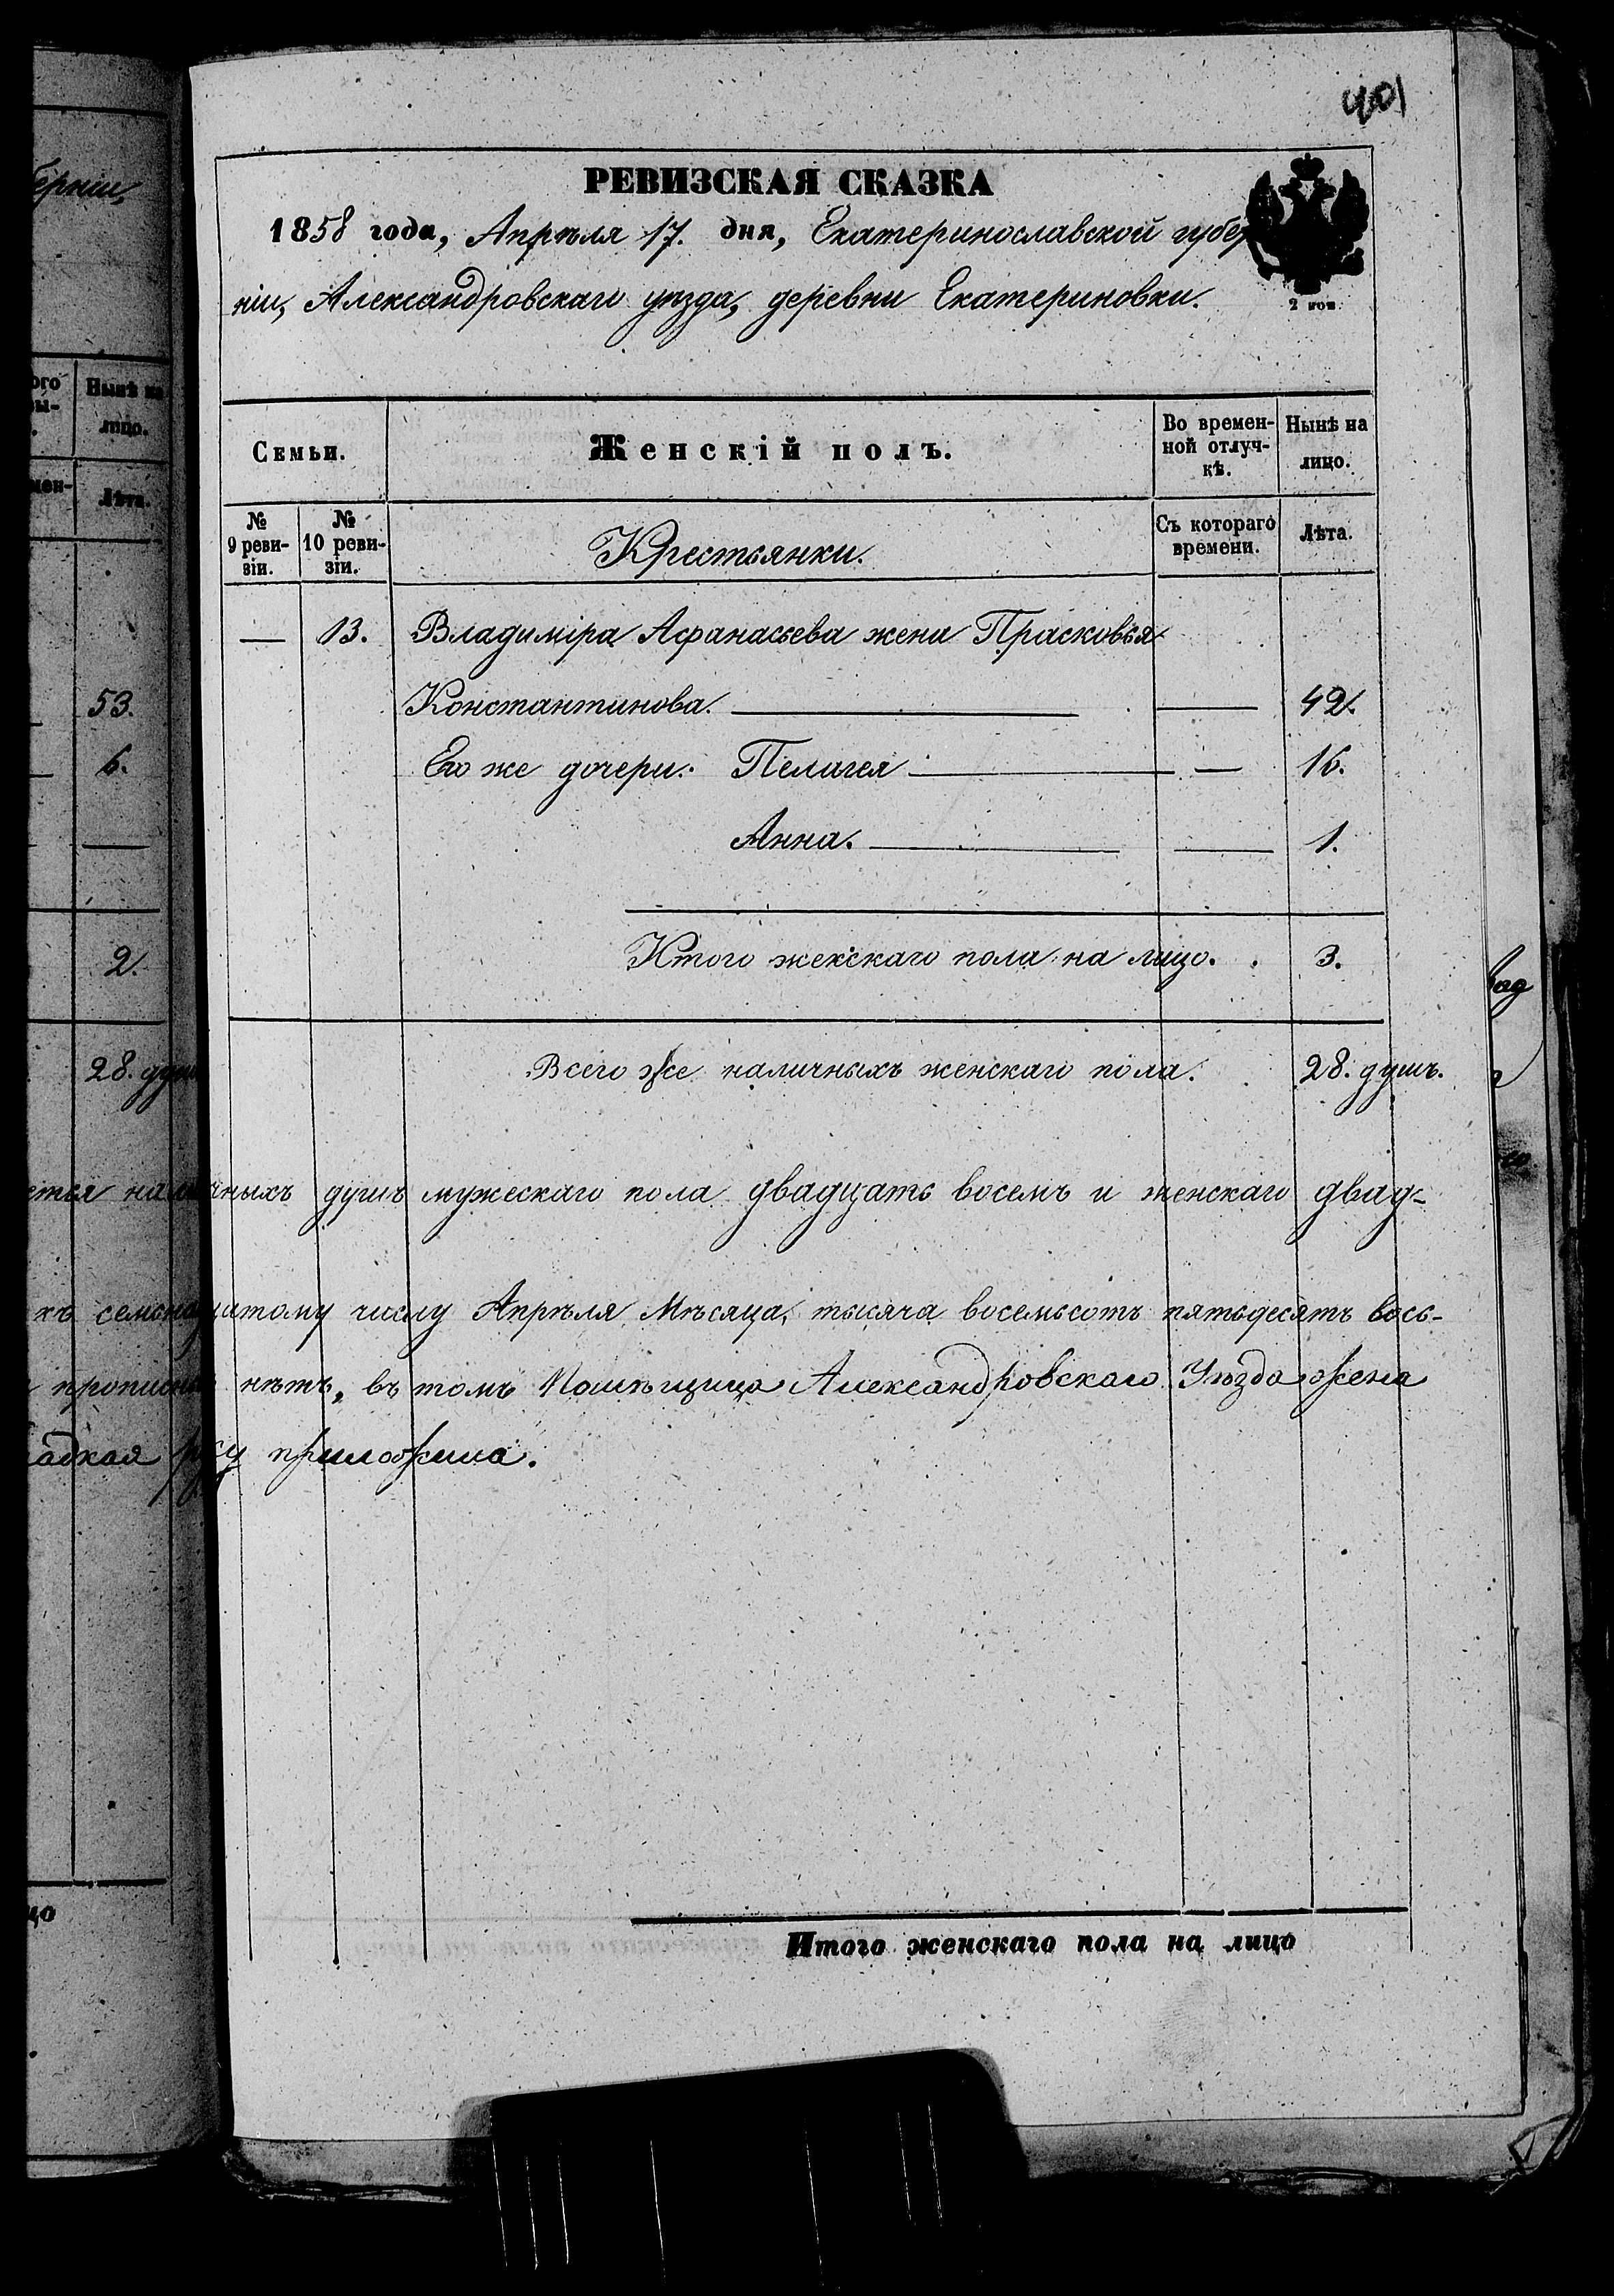 401
РЕВИЗСКАЯ СКАЗКА
1858 года, Апрѣля 17. дня, Екатеринославской губер
ніи, Александровскаго уѣзда, деревни Екатериновки.
2 коп.
Семьи.
Женскій полъ.
Во времен-
ной отлуч-
кѣ.
Нынѣ на
лицо.
№
9 реви-
зіи.
№
10 реви-
зіи.
Крестьянки.
Съ котораго
времени.
Лѣта.
— 13. Владиміра Афанасьева жена Прасковья
Константинова. — — 42.
Его же дочери: Пелагея — — 16.
Анна. — — 1.
Итого женскаго пола на лицо. . 3.
Всего же наличныхъ женскаго пола. 28. душъ.
душъ мужескаго пола двадцать восемь и женскаго двад-
къ семонадцатому числу Апрѣля Мѣсяца, тысяча восемьсотъ пятьдесятъ вось-
нѣтъ, въ томъ Помѣщица Александровскаго Уѣзда жена
адкая руку приложила.
Итого женскаго пола на лицо
берніи,
Нынѣ на
лицо.
Лѣта.
53.
6.
2.
28. душ